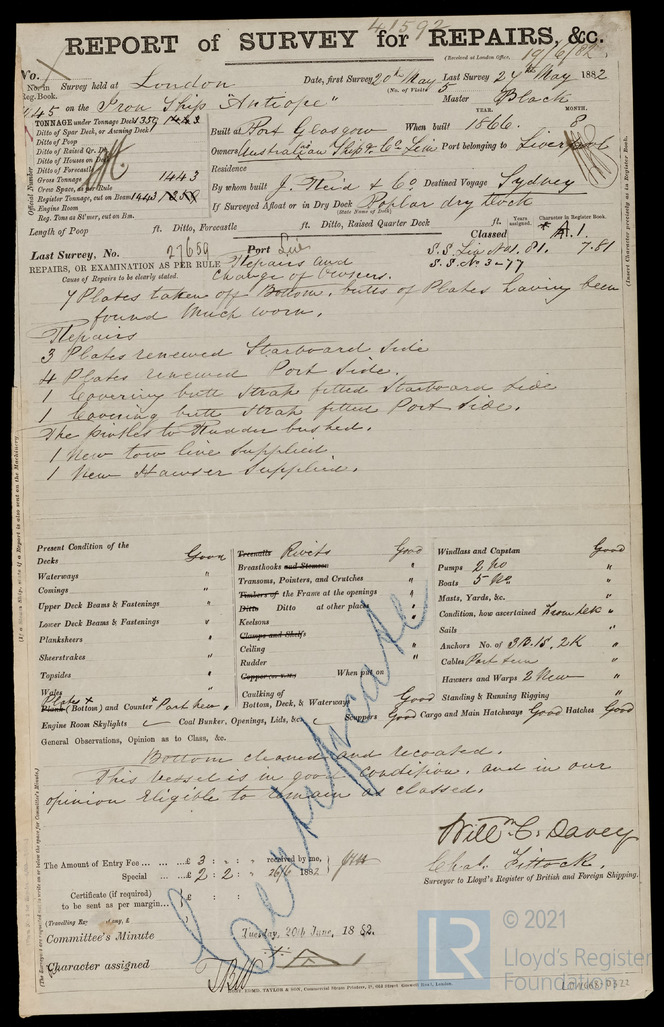 41592
REPORT of SURVEY for REPAIRS, &c.
(Received at London Office, 19/6/82
No.
No. in Reg. Book. Survey held at London Date, first Survey 20th May Last Survey 24th May 1882
(No. of Visits 5
445 on the Iron Ship "Antiope" Master Black
TONNAGE under Tonnage Deck 1359
Ditto of Spar Deck, or Awning Deck
Ditto of Poop
Ditto of Raised Qr. Dk.
Ditto of Houses on Deck
Ditto of Forecastle
Gross Tonnage 1443
Crew Space, as per Rule
Register Tonnage, cut on Beam 1443
Engine Room
Reg. Tons as St'mer, cut on Bm.
Official Number
YEAR. MONTH.
Built at Port Glasgow When built 1866. 8
Owners Australian Ship & Co Lim Port belonging to Liverpool
Residence
By whom built J. Reid & Co Destined Voyage Sydney
If Surveyed Afloat or in Dry Dock Poplar dry dock
(State Name of Dock)
Length of Poop ft. Ditto, Forecastle ft. Ditto, Raised Quarter Deck ft.
Years assigned. Character in Register Book.
Classed * A.1.
Last Survey, No. 27659 Port Liv S.S. Liv No 1. 81. 7.81
S.S. No 3-77
REPAIRS, OR EXAMINATION AS PER RULE Repairs and
Cause of Repairs to be clearly stated. Change of Owners.
7 Plates taken off Bottom, butts of Plates having been
found much worn.
Repairs
3 Plates renewed Starboard Side
4 Plates renewed Port Side.
1 Covering butt strap fitted Starboard Side
1 Covering butt strap fitted Port Side.
The pintles to Rudder bushed.
1 New tow line supplied
1 New Hawser supplied.
Present Condition of the
Decks Good
Waterways "
Comings "
Upper Deck Beams & Fastenings "
Lower Deck Beams & Fastenings "
Planksheers "
Sheerstrakes "
Topsides "
Wales "
Plates
Plank (Bottom) and Counter Part new.
Treenails Rivets Good
Breasthooks and Stemson "
Transoms, Pointers, and Crutches "
Timbers of the Frame at the openings "
Ditto Ditto at other places "
Keelsons "
Clamps and Shelfs
Ceiling "
Rudder "
Copper (or Y.M.) When put on
Caulking of Bottom, Deck, & Waterways Good
Windlass and Capstan Good
Pumps 2 No "
Boats 5 No. "
Masts, Yards, &c. "
Condition, how ascertained From deck "
Sails "
Anchors No. of 3B. 1S. 2K "
Cables "
Hawsers and Warps 2 New "
Standing & Running Rigging "
Engine Room Skylights Coal Bunker, Openings, Lids, &c. Scuppers Good Cargo and Main Hatchways Good Hatches Good
General Observations, Opinion as to Class, &c.
Bottom cleaned and recoated.
This vessel is in good condition, and in our
opinion Eligible to remain as classed.
Certificate
Willm C. Davey
Chas. Fittock.
Surveyor to Lloyd's Register of British and Foreign Shipping.
The Amount of Entry Fee ... £ 3 : : received by me,
Special ... £ 2 : 2 : 26/6 1882
Certificate (if required) £ : :
to be sent as per margin...
Committee's Minute Tuesday, 20th June, 1882.
Character assigned
LR © 2021
Lloyd's Register
Foundation